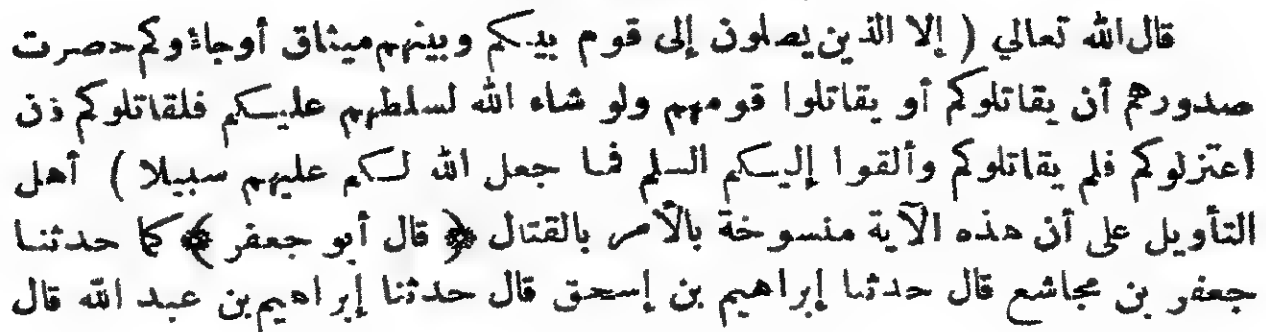 قال الله تعالي ( إلا الذين يصلون إلى قوم بينكم وبينهم ميثاق أوجاؤكم حصرت
صدورهم أن يقاتلوكم أو يقاتلوا قومهم ولو شاء الله لسلطهم عليكم فلقاتلوكم ذن
اعتزلوكم فلم يقاتلوكم وألقوا إليكم السلم فما جعل الله لكم عليهم سبيلا ) أهل
التأويل على أن هذه الآية منسوخة بالأمر بالقتال ﴿ قال أبو جعفر ﴾ كما حدثنا
جعفر بن مجاشع قال حدثنا إبراهيم بن إسحق قال حدثنا إبراهيم بن عبد الله قال